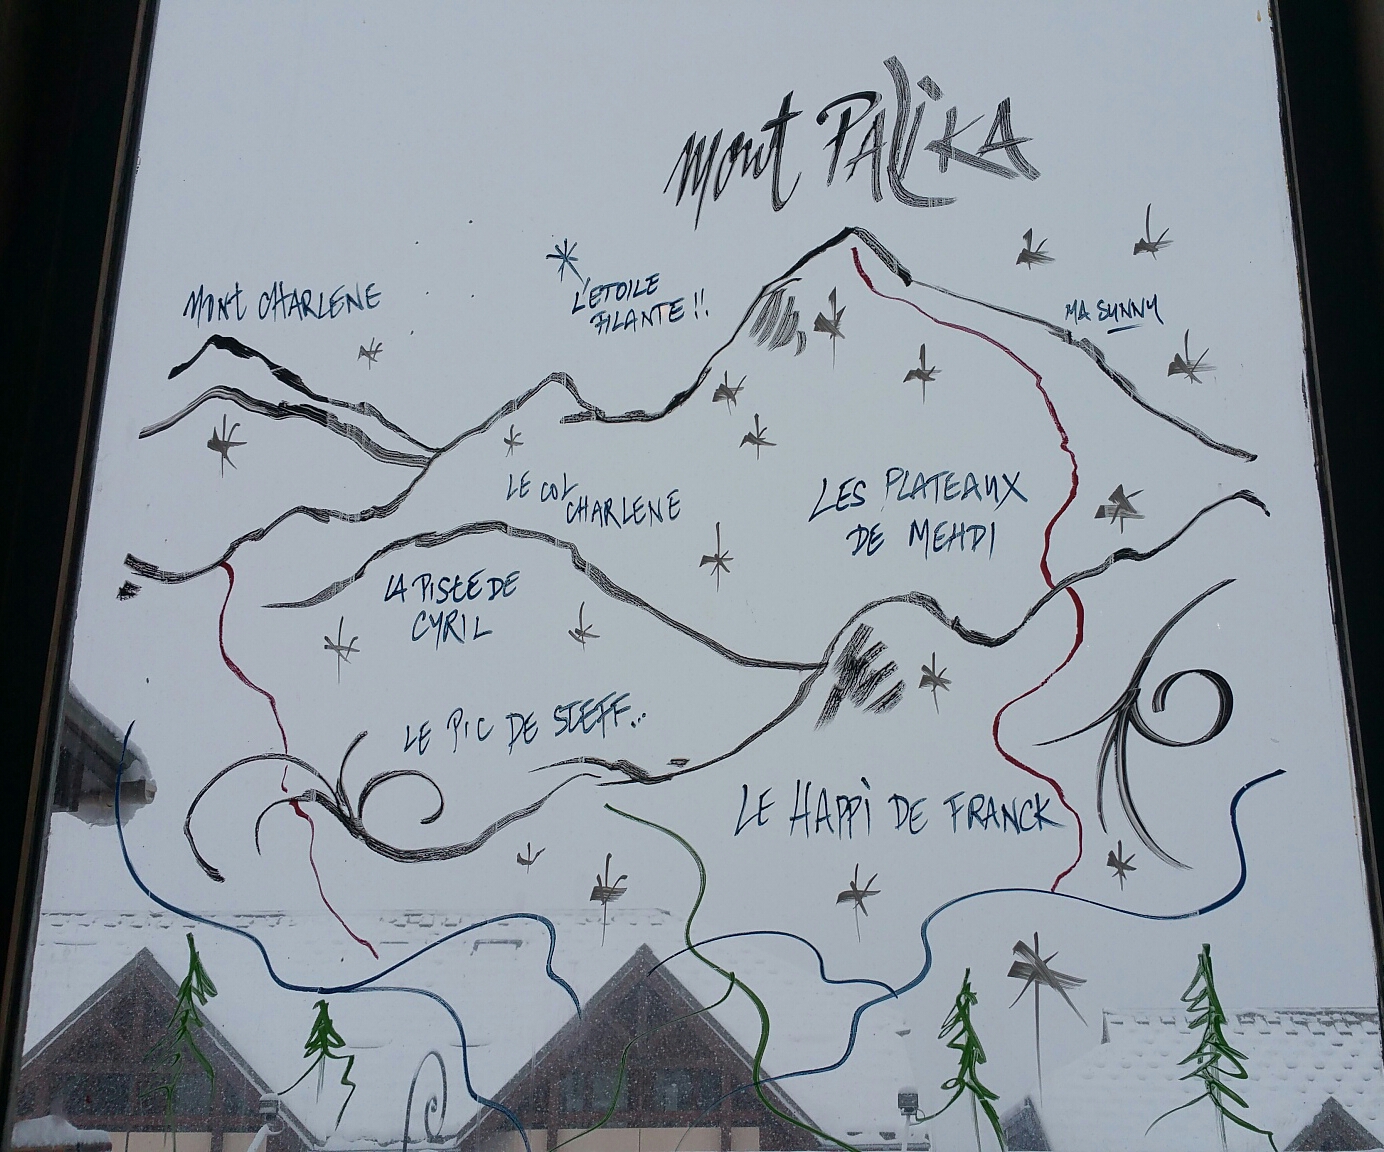 MONT PALIKA
MONT CHARLENE
L'ETOILE
FILANTE !!
MA SUNNY
LE COL
CHARLENE
LES PLATEAUX
DE MEHDI
LA PISTE DE
CYRIL
LE PIC DE STEFF...
LE HAPPI DE FRANCK